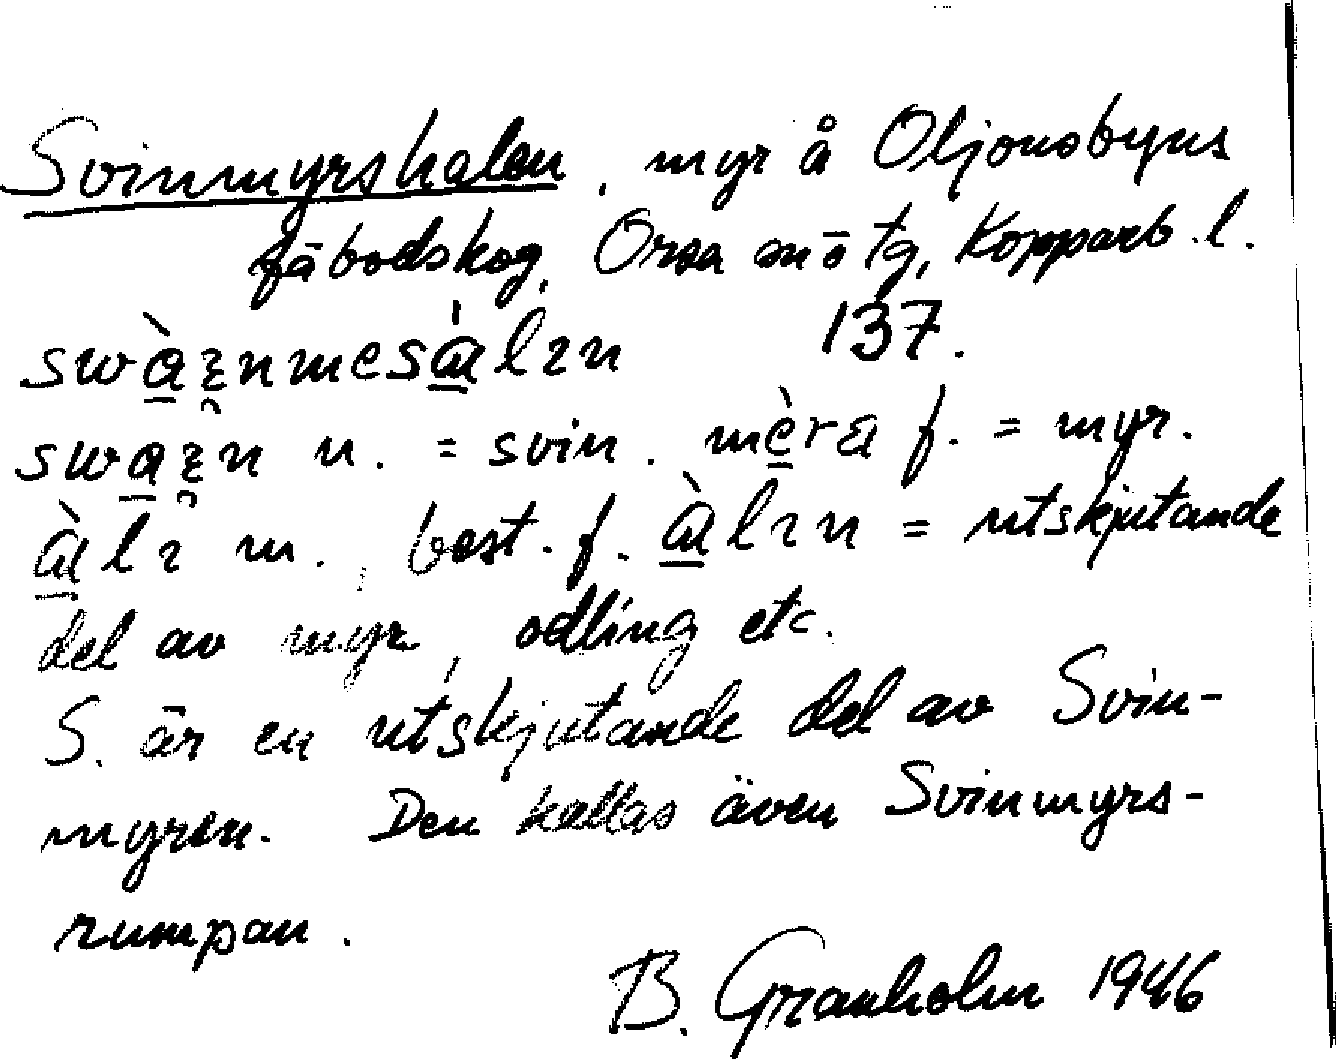 Svinmyrshalen, myr å Oljonsbyns
fäbodskog, Orsa sn ö tg, Kopparb. l.
137.
n. = svin. f. = myr.
m., best. f. = utskjutande
del av myr, odling etc.
S. är en utskjutande del av Svin-
myren. Den kallas även Svinmyrs-
rumpan.
B. Granholm 1946